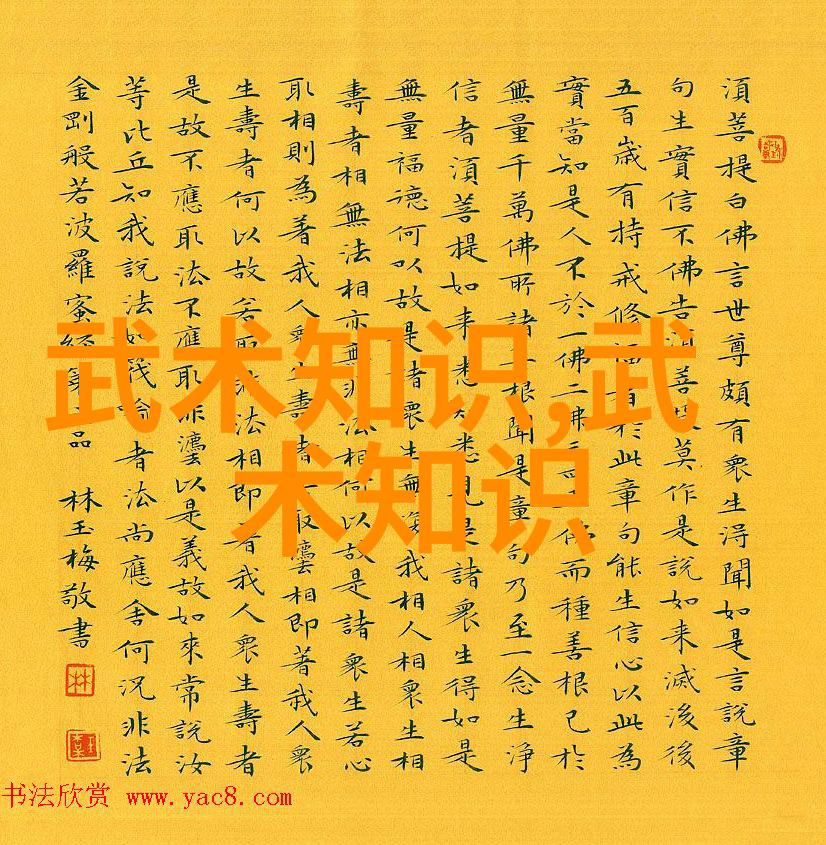 須菩提白佛言世尊頗有衆生淂聞如是言說章
句生實信不佛告須菩提莫作是說如来滅後後
五百歲有持戒修福者於此章句能生信心以此為
實當知是人不於一佛二佛三四佛而種善根已於
無量千萬佛所諸根聞是章句乃至一念生淨
信者須菩提如来悉知悉見是諸衆生得如是
無量福德何以故是諸衆生無復我相人相衆生相
壽者相無法相亦無非法相何以故是諸衆生若心
取相則為著我人衆生壽者取灋相即著我人衆
生壽者何以故若取非法相即著我人衆生壽者
是故不應取法不應取非灋以是義故如來常說汝
等比丘知我說法如筏喻者法尚應舍何況非法
金剛般若波羅蜜經第品 林玉梅敬書
武术知识,武
术知识
书法欣赏 www.yac8.com